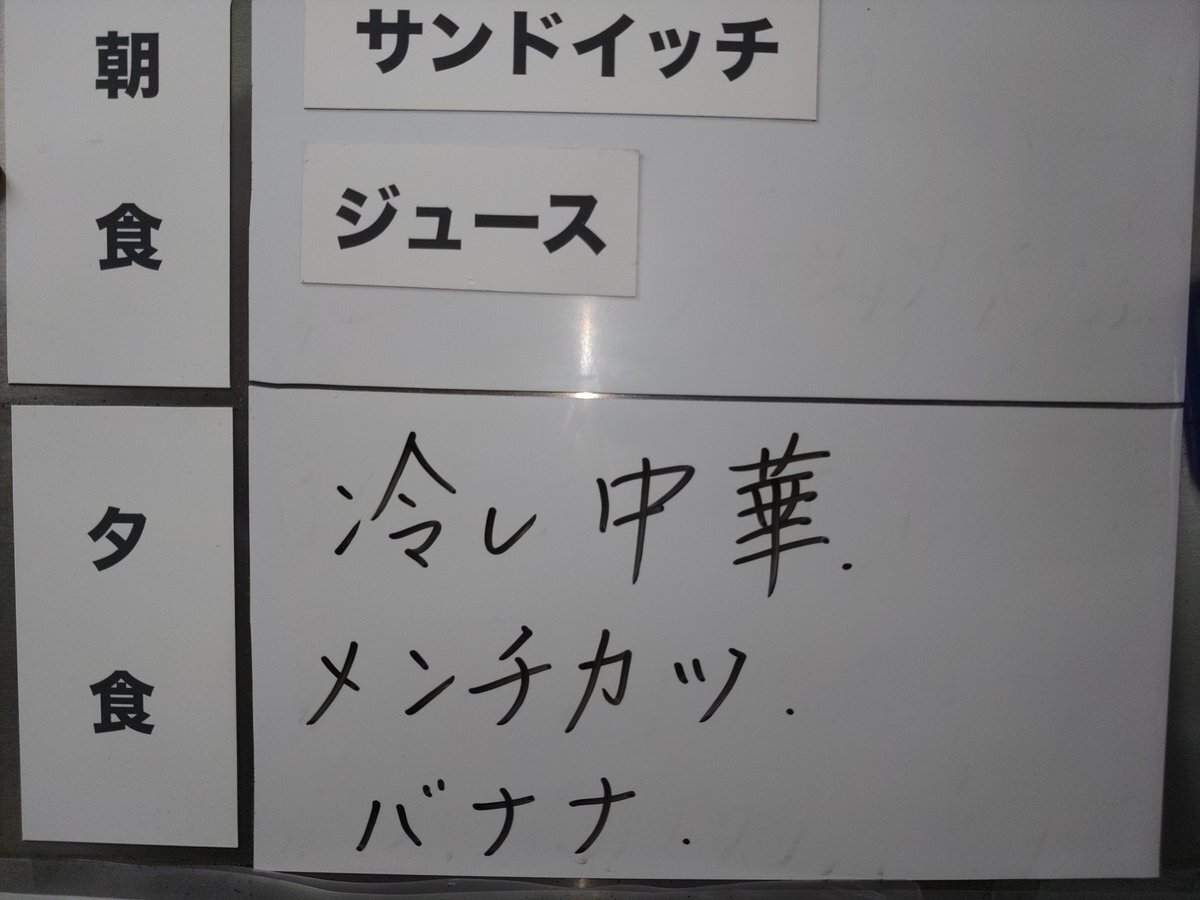 朝食
サンドイッチ
ジュース
夕食
冷し中華.
メンチカツ.
バナナ.